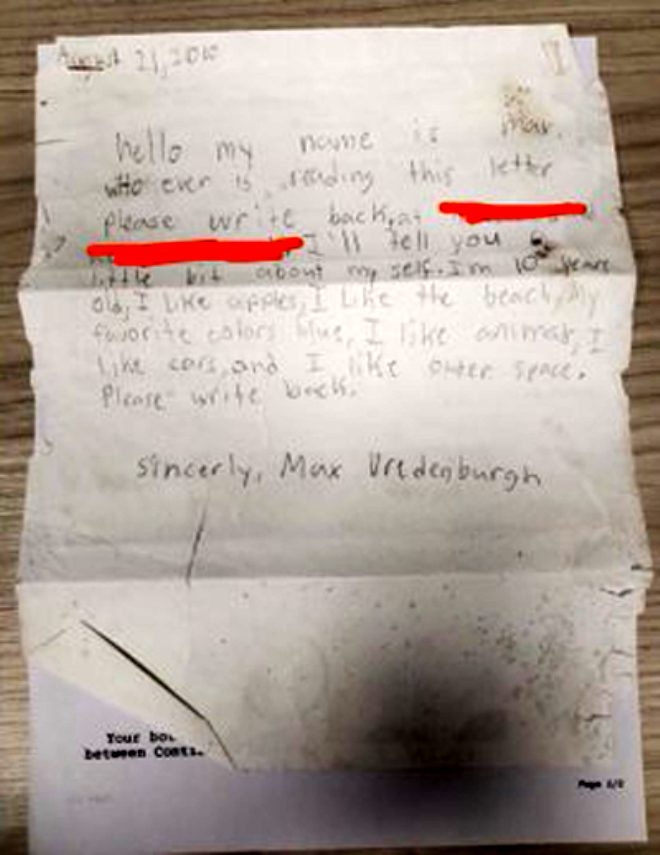 August 21, 2010
hello my name is Max.
who ever is reading this letter
please write back, at
I'll tell you a
little bit about my self. I'm 10 years
old, I like apples, I like the beach, My
favorite colors blue, I like animals, I
like cars, and I like outer space.
Please write back.
Sincerly, Max Vredenburgh
Your bo
between Conti
Page 2/2